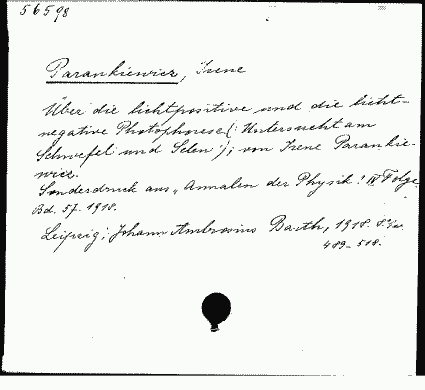 56598
Parankiewicz, Irene
Über die lichtpositive und die licht-
negative Photophorese (: Untersucht am
Schwefel und Selen :); von Irene Parankie-
wicz.
Sonderdruck aus „Annalen der Physik“. IV. Folge.
Bd. 57. 1918.
Leipzig; Johann Ambrosius Barth, 1918. 8°
489-518.